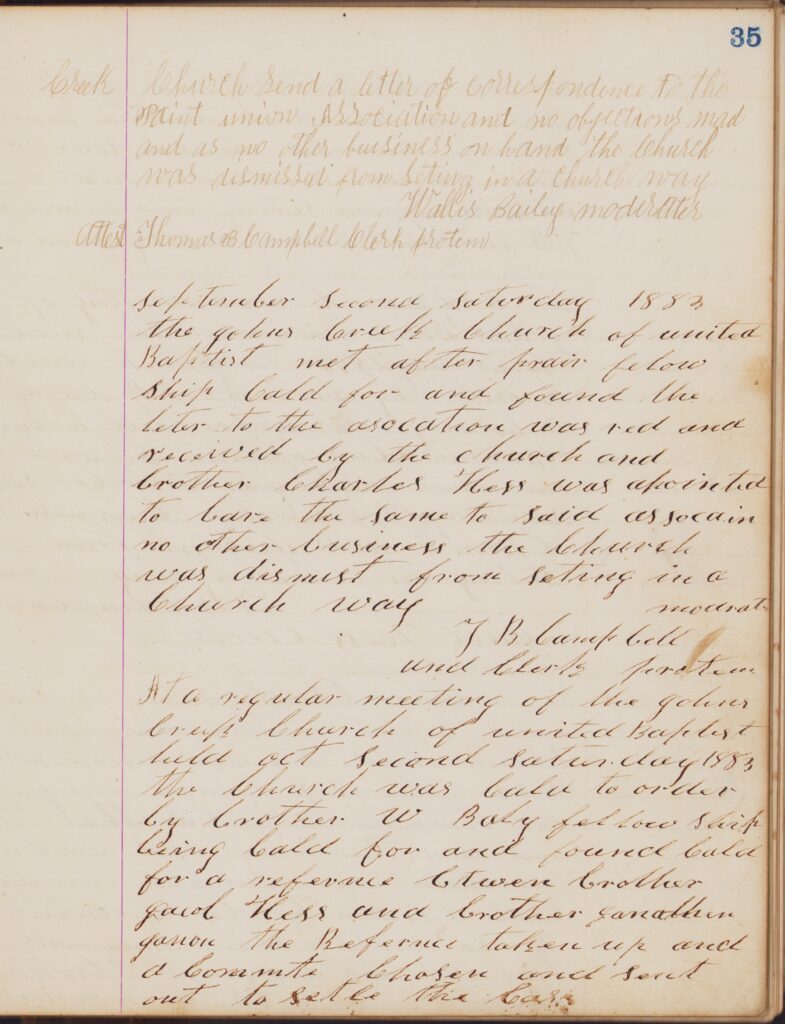 35
Creek Church send a letter of correspondence to the
paint union Association and no objections mad
and as no other buisiness on hand the Church
was dismissed from seting in a church way
Wallis Bailey moderatter
Attest Thomas B Campbell Clerk protem
september second saturday 1883
the gohns Creek Church of united
Baptist met after prair felow
ship Cald for and found the
leter to the asocation was red and
received by the church and
brother Charles Hess was apointed
to bare the same to said assocain
no other business the Church
was dismist from seting in a
Church way modrat
T B Campbell
and Clerk protem
At a regular meeting of the gohns
Creek Church of united Baptist
held oct second saturday 1883
the Church was Cald to order
by brother W Baly fellow ship
being Cald for and found Cald
for a refernce btwen brother
Hess and brother
the Refernce taken up and
a Commite Chosen and sent
out to setle the Case